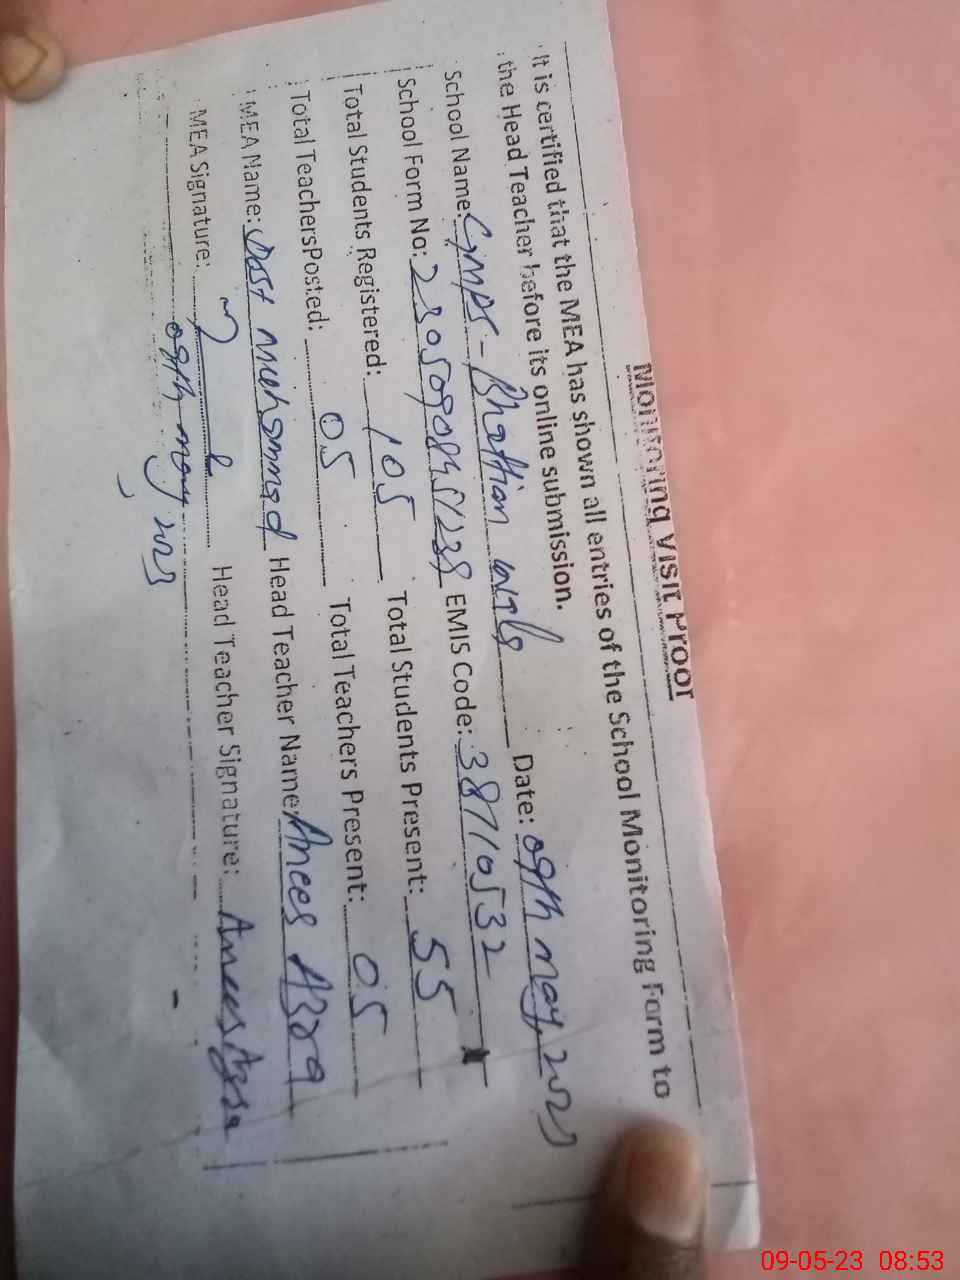 Monitoring Visit Proof
It is certified that the MEA has shown all entries of the School Monitoring Form to
the Head Teacher before its online submission.
School Name: GMPS-Bhattian wala Date: 09th may, 2023
School Form No: EMIS Code: 38710532
Total Students Registered: 105 Total Students Present: 55
Total TeachersPosted: 05 Total Teachers Present: 05
MEA Name: Dost Muhammad Head Teacher Name: Anees
MEA Signature: Head Teacher Signature: Anees
09th may, 2023
09-05-23 08:53